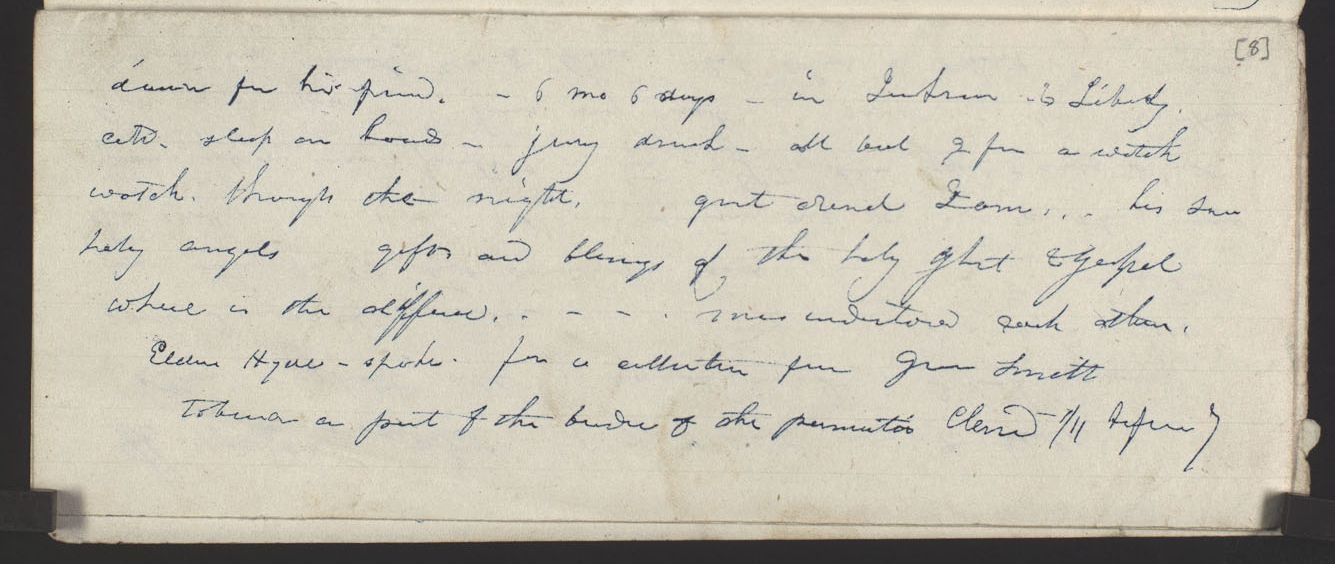 [8]
down for his friend. – 6 mo 6 days – in & Liberty.
sleep on – jury drunk – all but for a watch
watch. through the night. I am... his son
holy angels gifts and blessings of the holy ghost & Gospel
where is the difference. . – – – . misunderstood each other.
Elder Hyde – spoke. for a collection for Geo Smith
To bear a part of the burden of the Closed 1/11